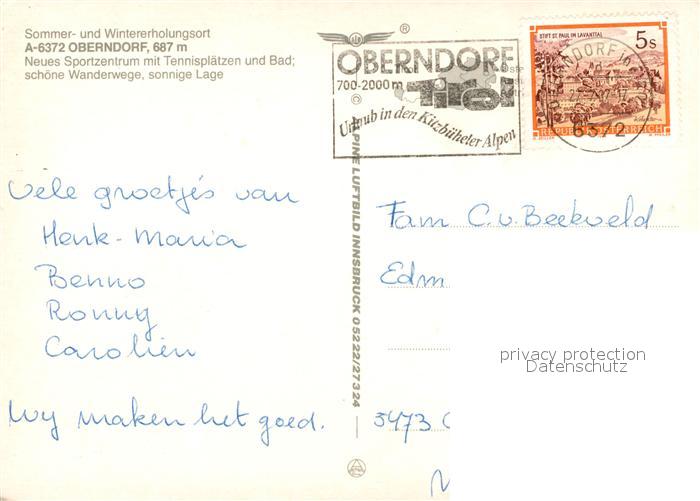 Sommer- und Wintererholungsort
A-6372 OBERNDORF, 687 m
Neues Sportzentrum mit Tennisplätzen und Bad;
schöne Wanderwege, sonnige Lage
®
OBERNDORF
700-2000 m
Tirol
Urlaub in den Kitzbüheler Alpen
STIFT ST. PAUL IM LAVANTTAL
5 s
REPUBLIK ÖSTERREICH
OBERNDORF
6372
ALPINE LUFTBILD INNSBRUCK 05222/27324
Vele groetjes van
Henk-Maria
Benno
Ronny
Carolien
Wy maken het goed.
Fam C.v. Beekveld
Edm
5473
privacy protection
Datenschutz